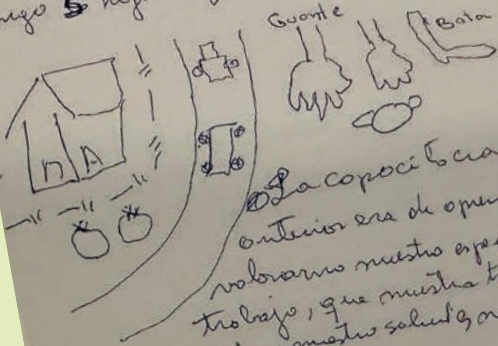 Guante
Bota
D A
La capacitacia
anterior era de apren
valoramo nuestro espa
trabajo, que nuestra t
nuestro salud es